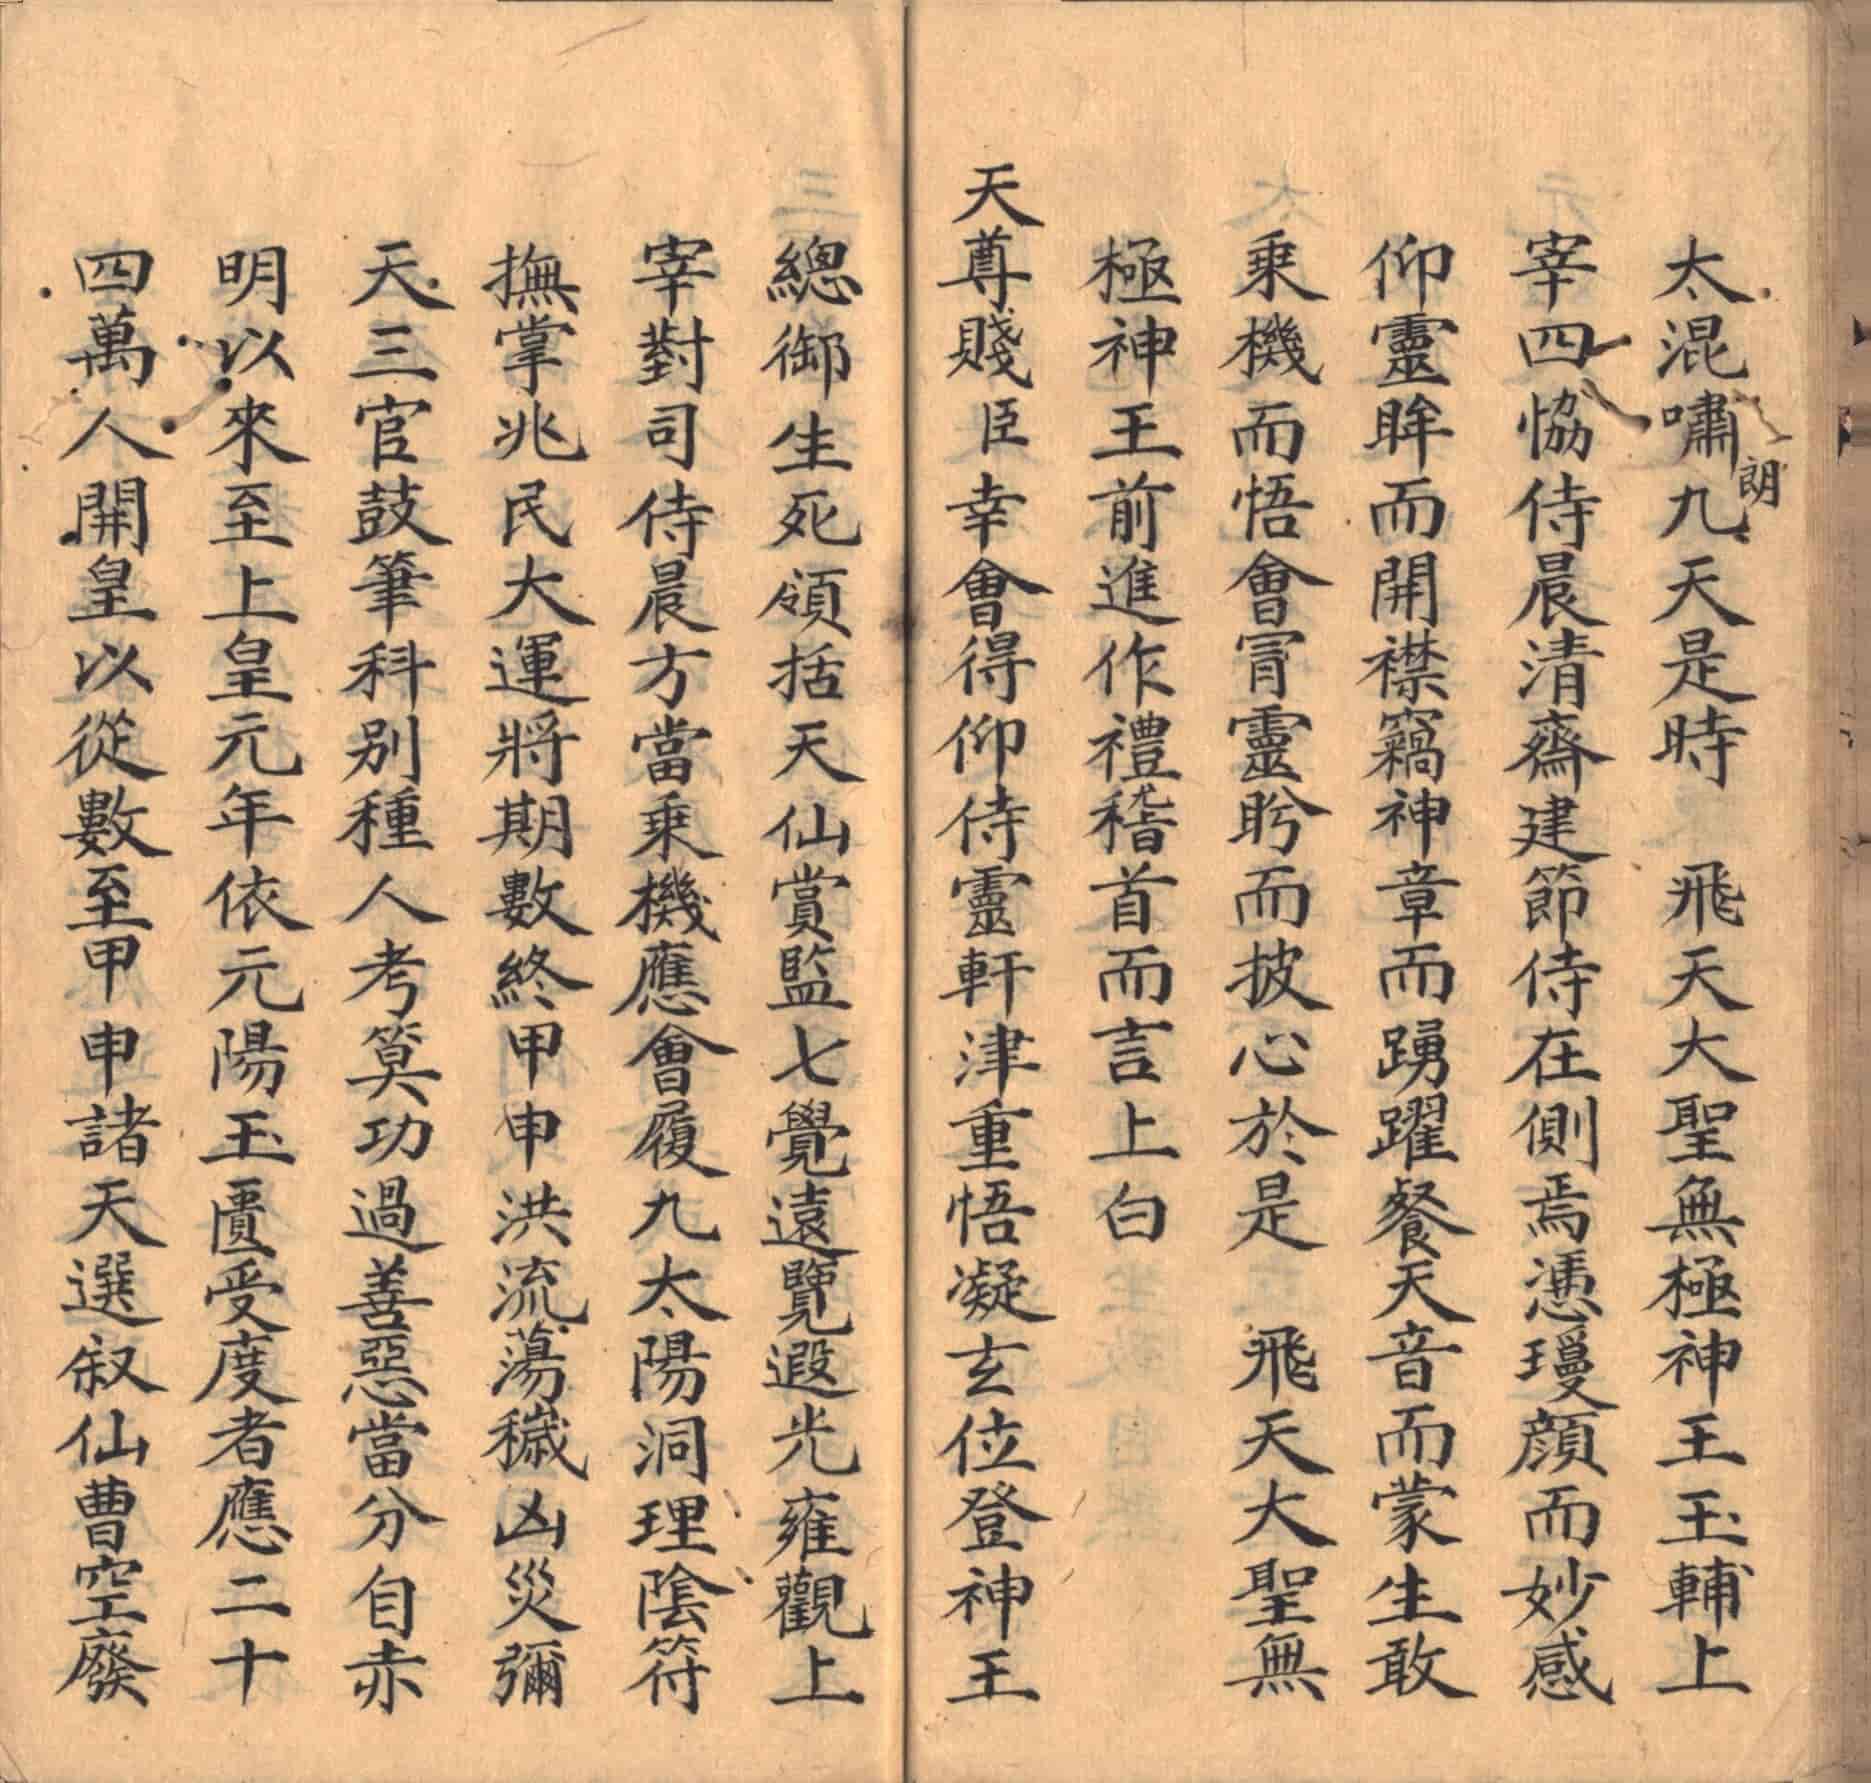 太混嘯朗九天是時　飛天大聖無極神王玉輔上
宰四恊侍晨清齋建節侍在側焉憑瓊顔而妙感
仰靈眸而開襟竊神章而踴躍餐天音而蒙生敢
乗機而悟會冥靈盻而披心於是　飛天大聖無
極神王前進作禮稽首而言上白
天尊賤臣幸會得仰侍靈軒津重悟凝玄位登神王
總御生死領括天仙賞監七覺遠覽遐光雍觀上
宰對司侍晨方當乗機應會履九太陽洞理陰符
撫掌兆民大運將期數終甲申洪流蕩穢凶災彌
天三官鼓筆科別種人考筭功過善惡當分自赤
明以來至上皇元年依元陽玉匱受度者應二十
四萬人開皇以從數至甲申諸天選叙仙曹空廢